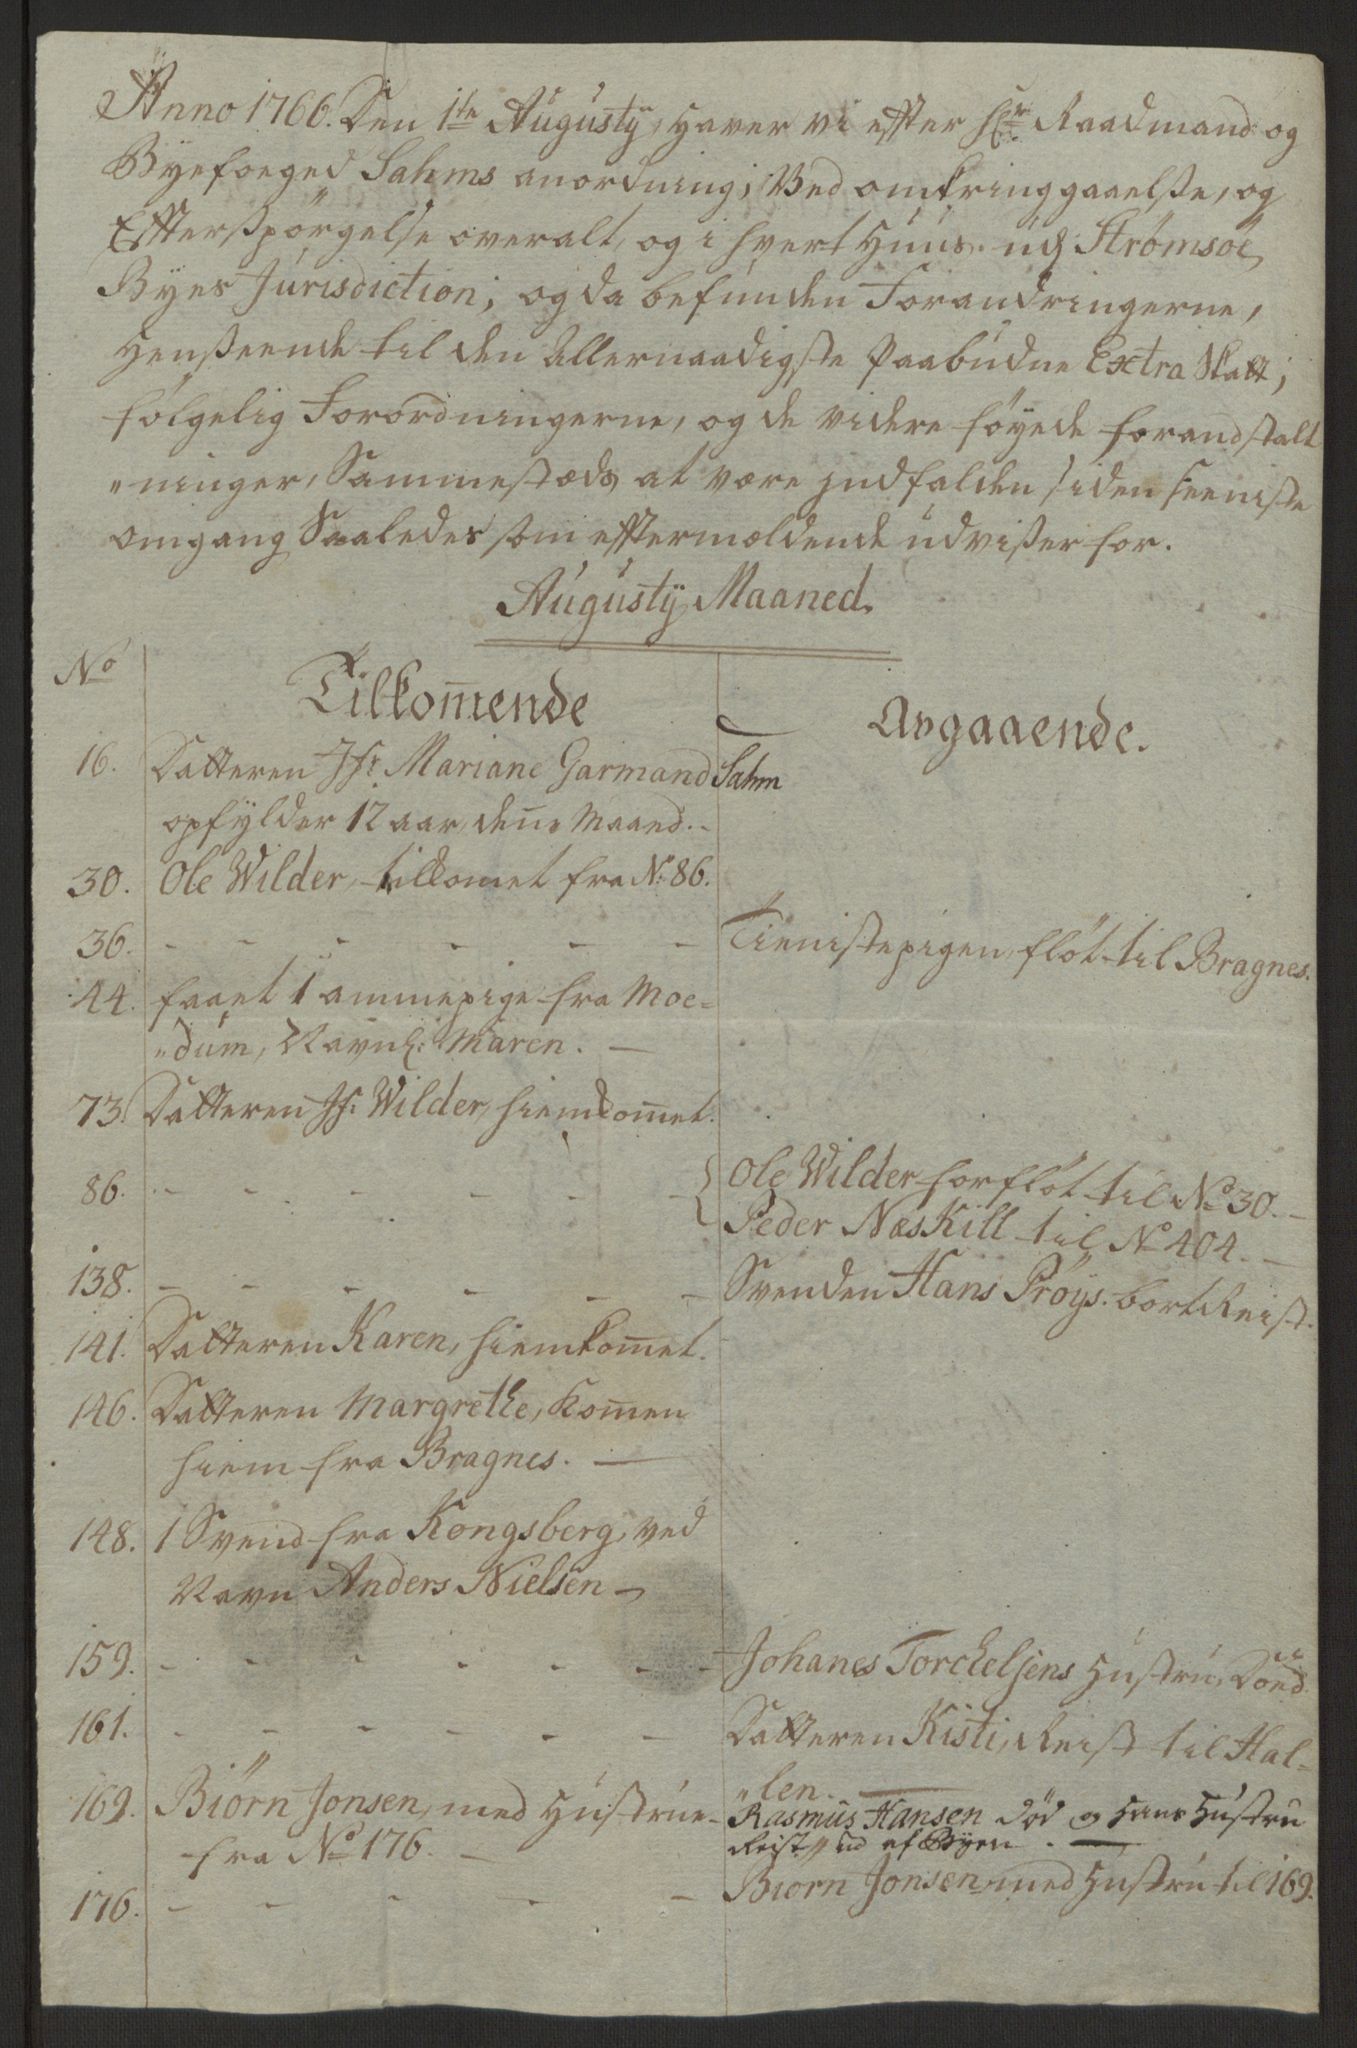 Anno 1766. Den 1te Augusty, haver vi efter Hr. Raadmand og
Byefoeged Sahms anordning, Ved omkringgaaelße, og
Efterßpörgelse overalt, og i hvert Huus udj Strømsöe
Byes Jurisdiction; og da befunden Forandringerne,
Henßeende til den Allernaadigste Paabudne Extra Skatt;
fölgelig Forordningerne, og de videre föyede foranstalt
„ninger, Sammestæds at være jndfalden siden seeniste
omgang Saaledes som eftermeldende udvißer for.
Augusty Maaned.
No Tilkom̅ende Avgaaende.
16. Datteren Jfr. Mariane Garmand Sahm
opfylder 12 aar den̅e Maaned.
30. Ole Wilder, tilkomet fra No. 86.
36. - - - - - - Tienistepigen, flöt til Bragnes.
44. faaet 1 ammepige fra Moe-
„dum, Navnl: Maren. —
73. Datteren Jfr. Wilder, hiemkom̅et.
86. - - - - - - { Ole Wilder forflöt til No 30. —
Peder Næskill til No 404. —
138. - - - - - - Svenden Hans Pröys. bortReist.
141. Datteren Karen, hiemkom̅et.
146. Datteren Margrethe, Kom̅en
hiem fra Bragnes. —
148. 1 Svend fra Kongsberg, ved
Navn Anders Nielsen —
159. - - - - - - - Johanes Torckelsens Hustru, Döed.
161. - - - - - - Datteren Kisti, Reist til Hal-
„len. —
169. Biörn Jonsen, med Hustrue - Rasmus Hansen död og hans Hustru
fra No 176. — Reist ud af Byen. —
176. - - - - - Biorn Jonsen med Hustru til 169.